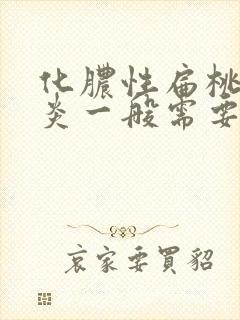 化膿性扁桃
炎一般需要
哀家要買貂